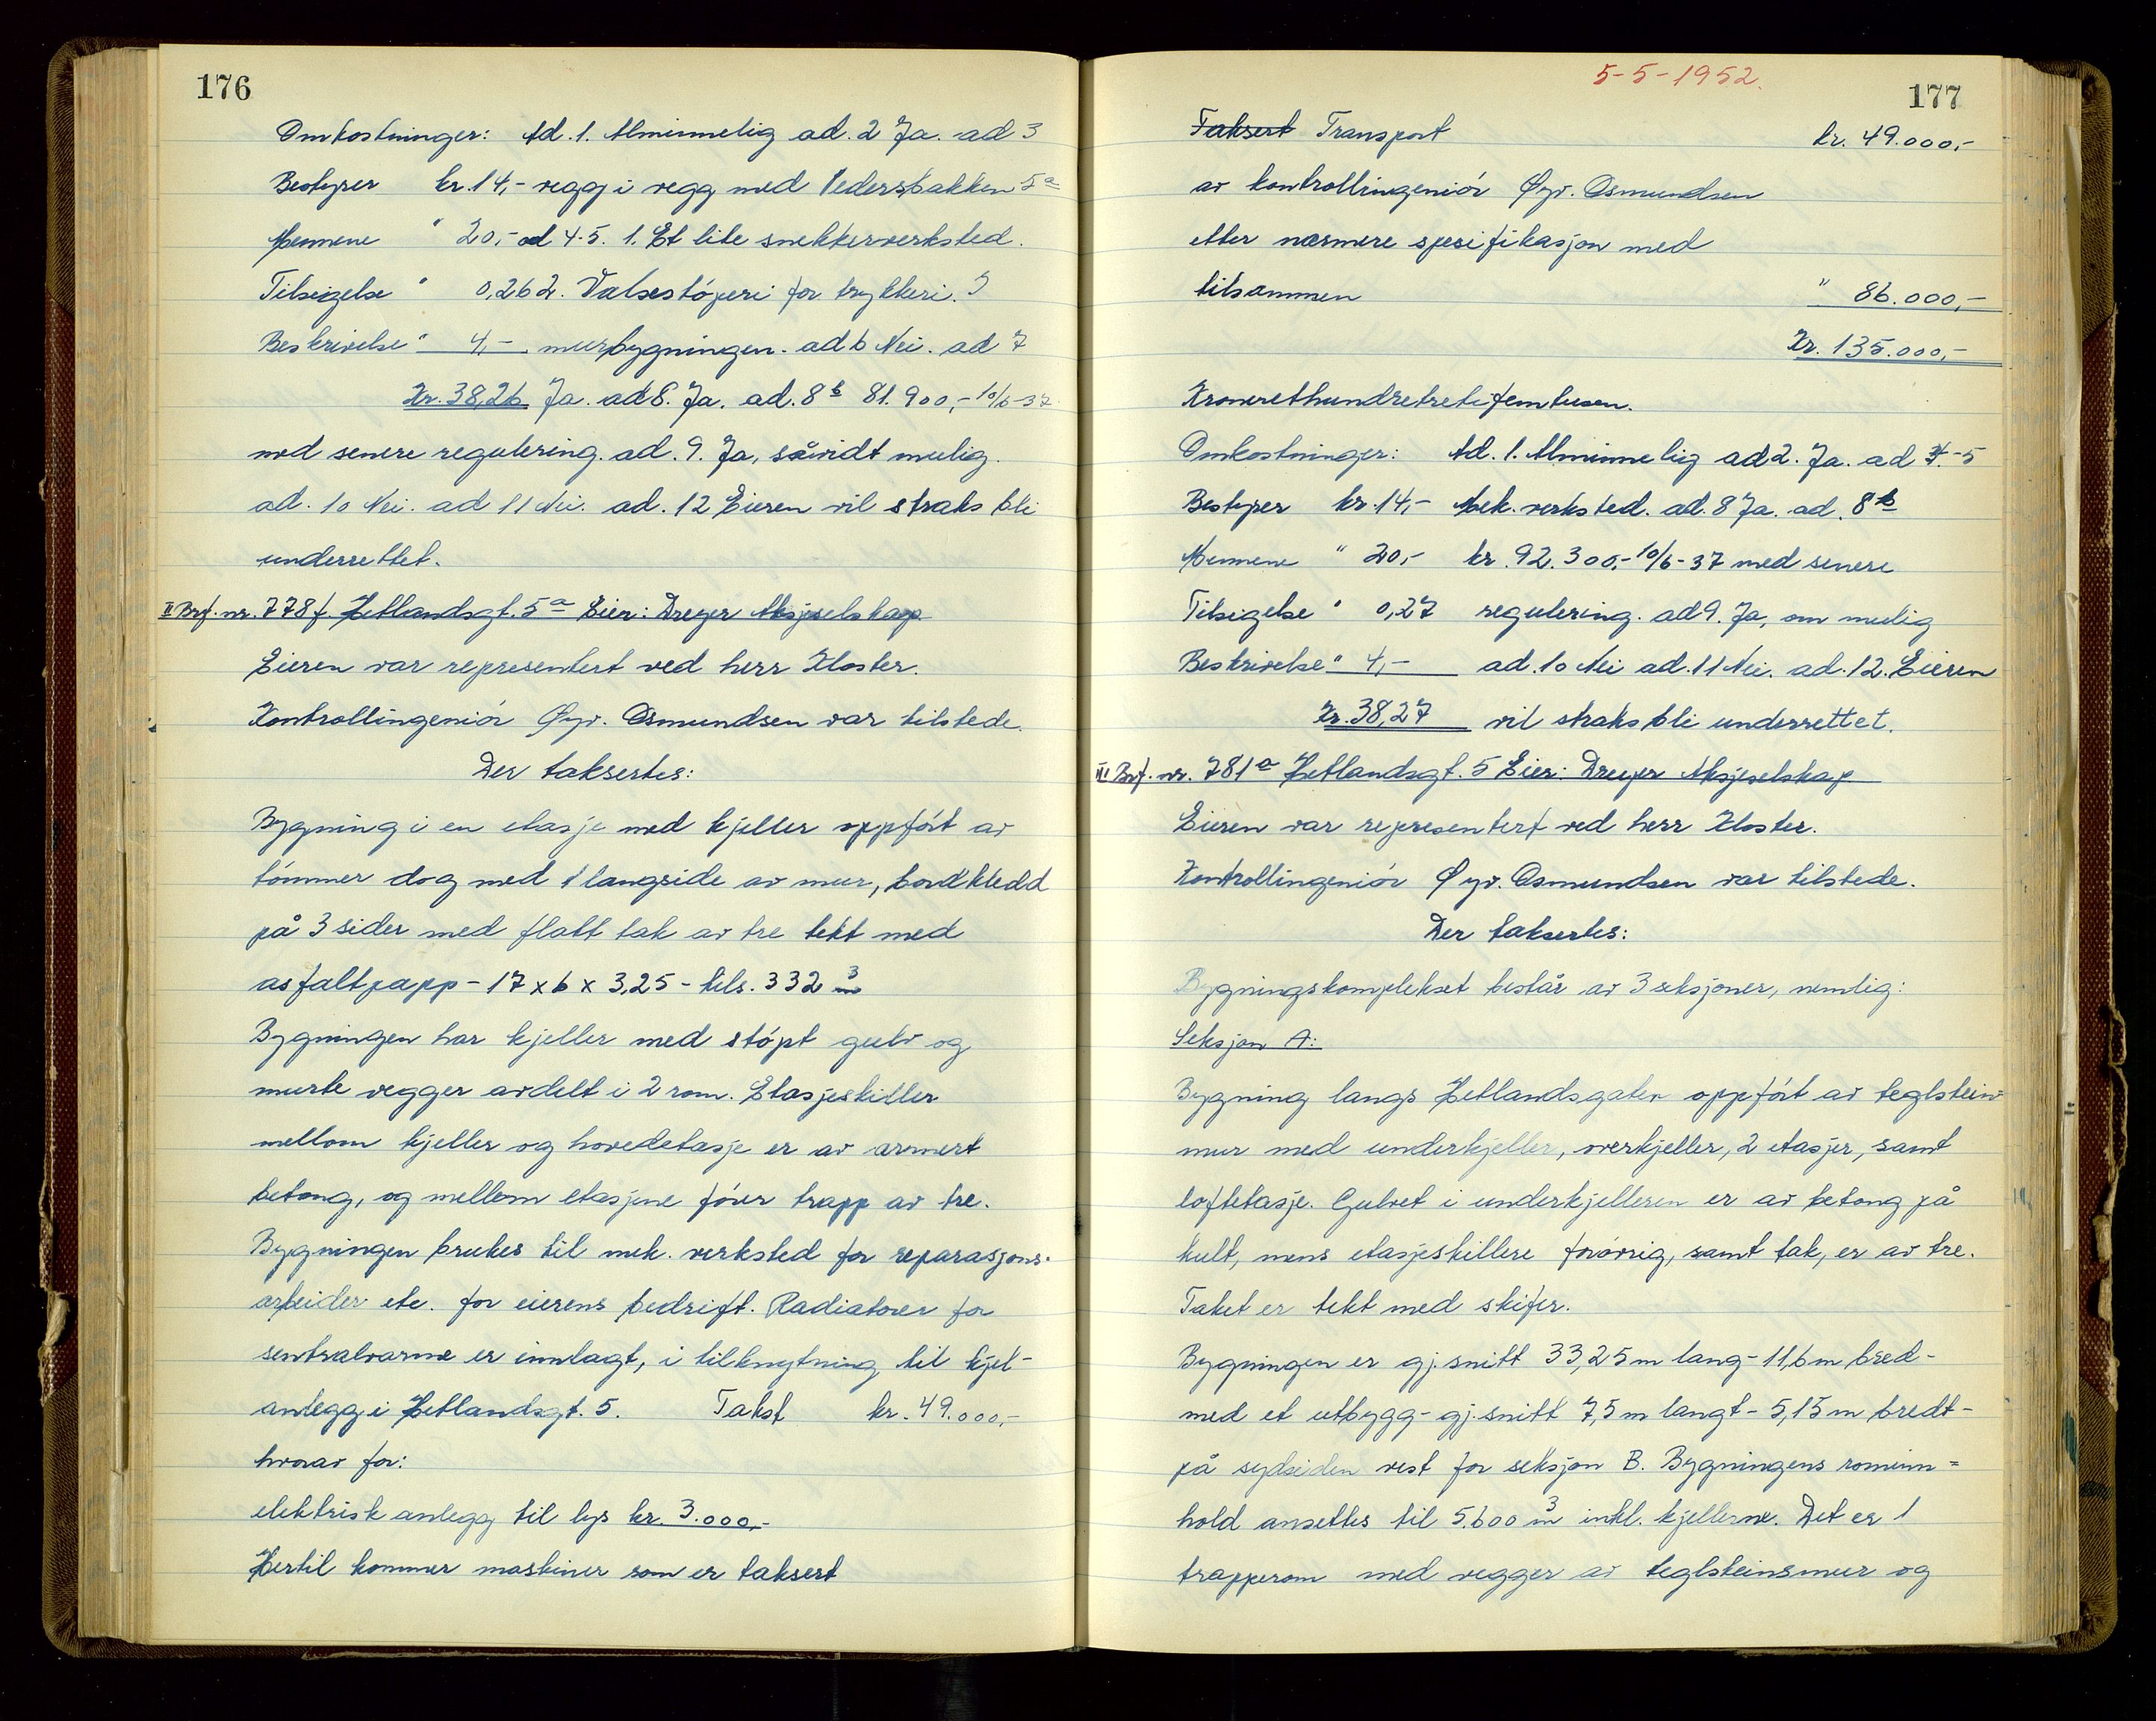 176
Omkostninger: Ad. 1. Alminnelig ad. 2 Ja. ad 3
Bestyrer kr. 14,- vegg i vegg med Vedersbakken 5a
Mennene " 20,- ad 4-5. 1. Et lite snekkerverksted.
Tilsigelse " 0,26 2. Valsestöperi for trykkeri. I
Beskrivelse " 4,- murbygningen. ad 6 Nei. ad 7
Kr. 38,26 Ja. ad 8. Ja. ad. 8b 81.900,- 10/6-37
med senere regulering. ad. 9. Ja, såvidt mulig.
ad. 10 Nei. ad 11 Nei. ad. 12 Eieren vil straks bli
underrettet.
II Brf. nr. 778f. Hetlandsgt. 5a Eier: Dreyer Aksjeselskap
Eieren var representert ved herr Kloster.
Kontrollingeniör Öyv. Osmundsen var tilstede.
Der taksertes:
Bygning i en etasje med kjeller oppfört av
tömmer dog med 1 langside av mur, bordkledd
på 3 sider med flatt tak av tre tekt med
asfaltpapp - 17 x 6 x 3,25 - tils. 332 m3
Bygningen har kjeller med stöpt gulv og
murte vegger avdelt i 2 rom. Etasjeskiller
mellom kjeller og hovedetasje er av armert
betong, og mellom etasjene förer trapp av tre.
Bygningen brukes til mek. verksted for reparasjons-
arbeider etc. for eierens bedrift. Radiatorer for
sentralvarme er innlagt, i tilknytning til kjel-
anlegg i Hetlandsgt. 5. Takst kr. 49.000,-
hvorav for:
elektrisk anlegg til lys kr. 3.000,-
Hertil kommer maskiner som er taksert
5-5-1952.
177
Taksert Transport kr. 49.000,-
av kontrollingeniör Öyv. Osmundsen
etter nærmere spesifikasjon med
tilsammen " 86.000,-
Kr. 135.000,-
Kronerethundretretifemtusen.
Omkostninger: Ad. 1. Alminnelig ad 2. Ja. ad 4.-5
Bestyrer kr. 14,- Mek. verksted. ad. 8 Ja. ad. 8b
Mennene " 20,- kr. 92.300,- 10/6-37 med senere
Tilsigelse " 0,27 regulering. ad 9. Ja, om mulig
Beskrivelse " 4,- ad. 10 Nei ad. 11 Nei. ad. 12. Eieren
Kr. 38,27 vil straks bli underrettet.
III Brf. nr. 781a Hetlandsgt. 5 Eier: Dreyer Aksjeselskap
Eieren var representert ved herr Kloster.
Kontrollingeniör Öyv. Osmundsen var tilstede.
Der taksertes:
Bygningskomplekset består av 3 seksjoner, nemlig:
Seksjon A:
Bygning langs Hetlandsgaten oppfört av teglstein-
mur med underkjeller, overkjeller, 2 etasjer, samt
loftetasje. Gulvet i underkjelleren er av betong på
kult, mens etasjeskillere forövrig, samt tak, er av tre.
Taket er tekt med skifer.
Bygningen er gj.snitt 33,25 m lang - 11,6 m bred -
med et utbygg - gj.snitt 7,5 m langt - 5,15 m bredt -
på sydsiden vest for seksjon B. Bygningens rominn=
hold ansettes til 5.600 m3 inkl. kjellerne. Det er 1
trapperom med vegger av teglsteinsmur og